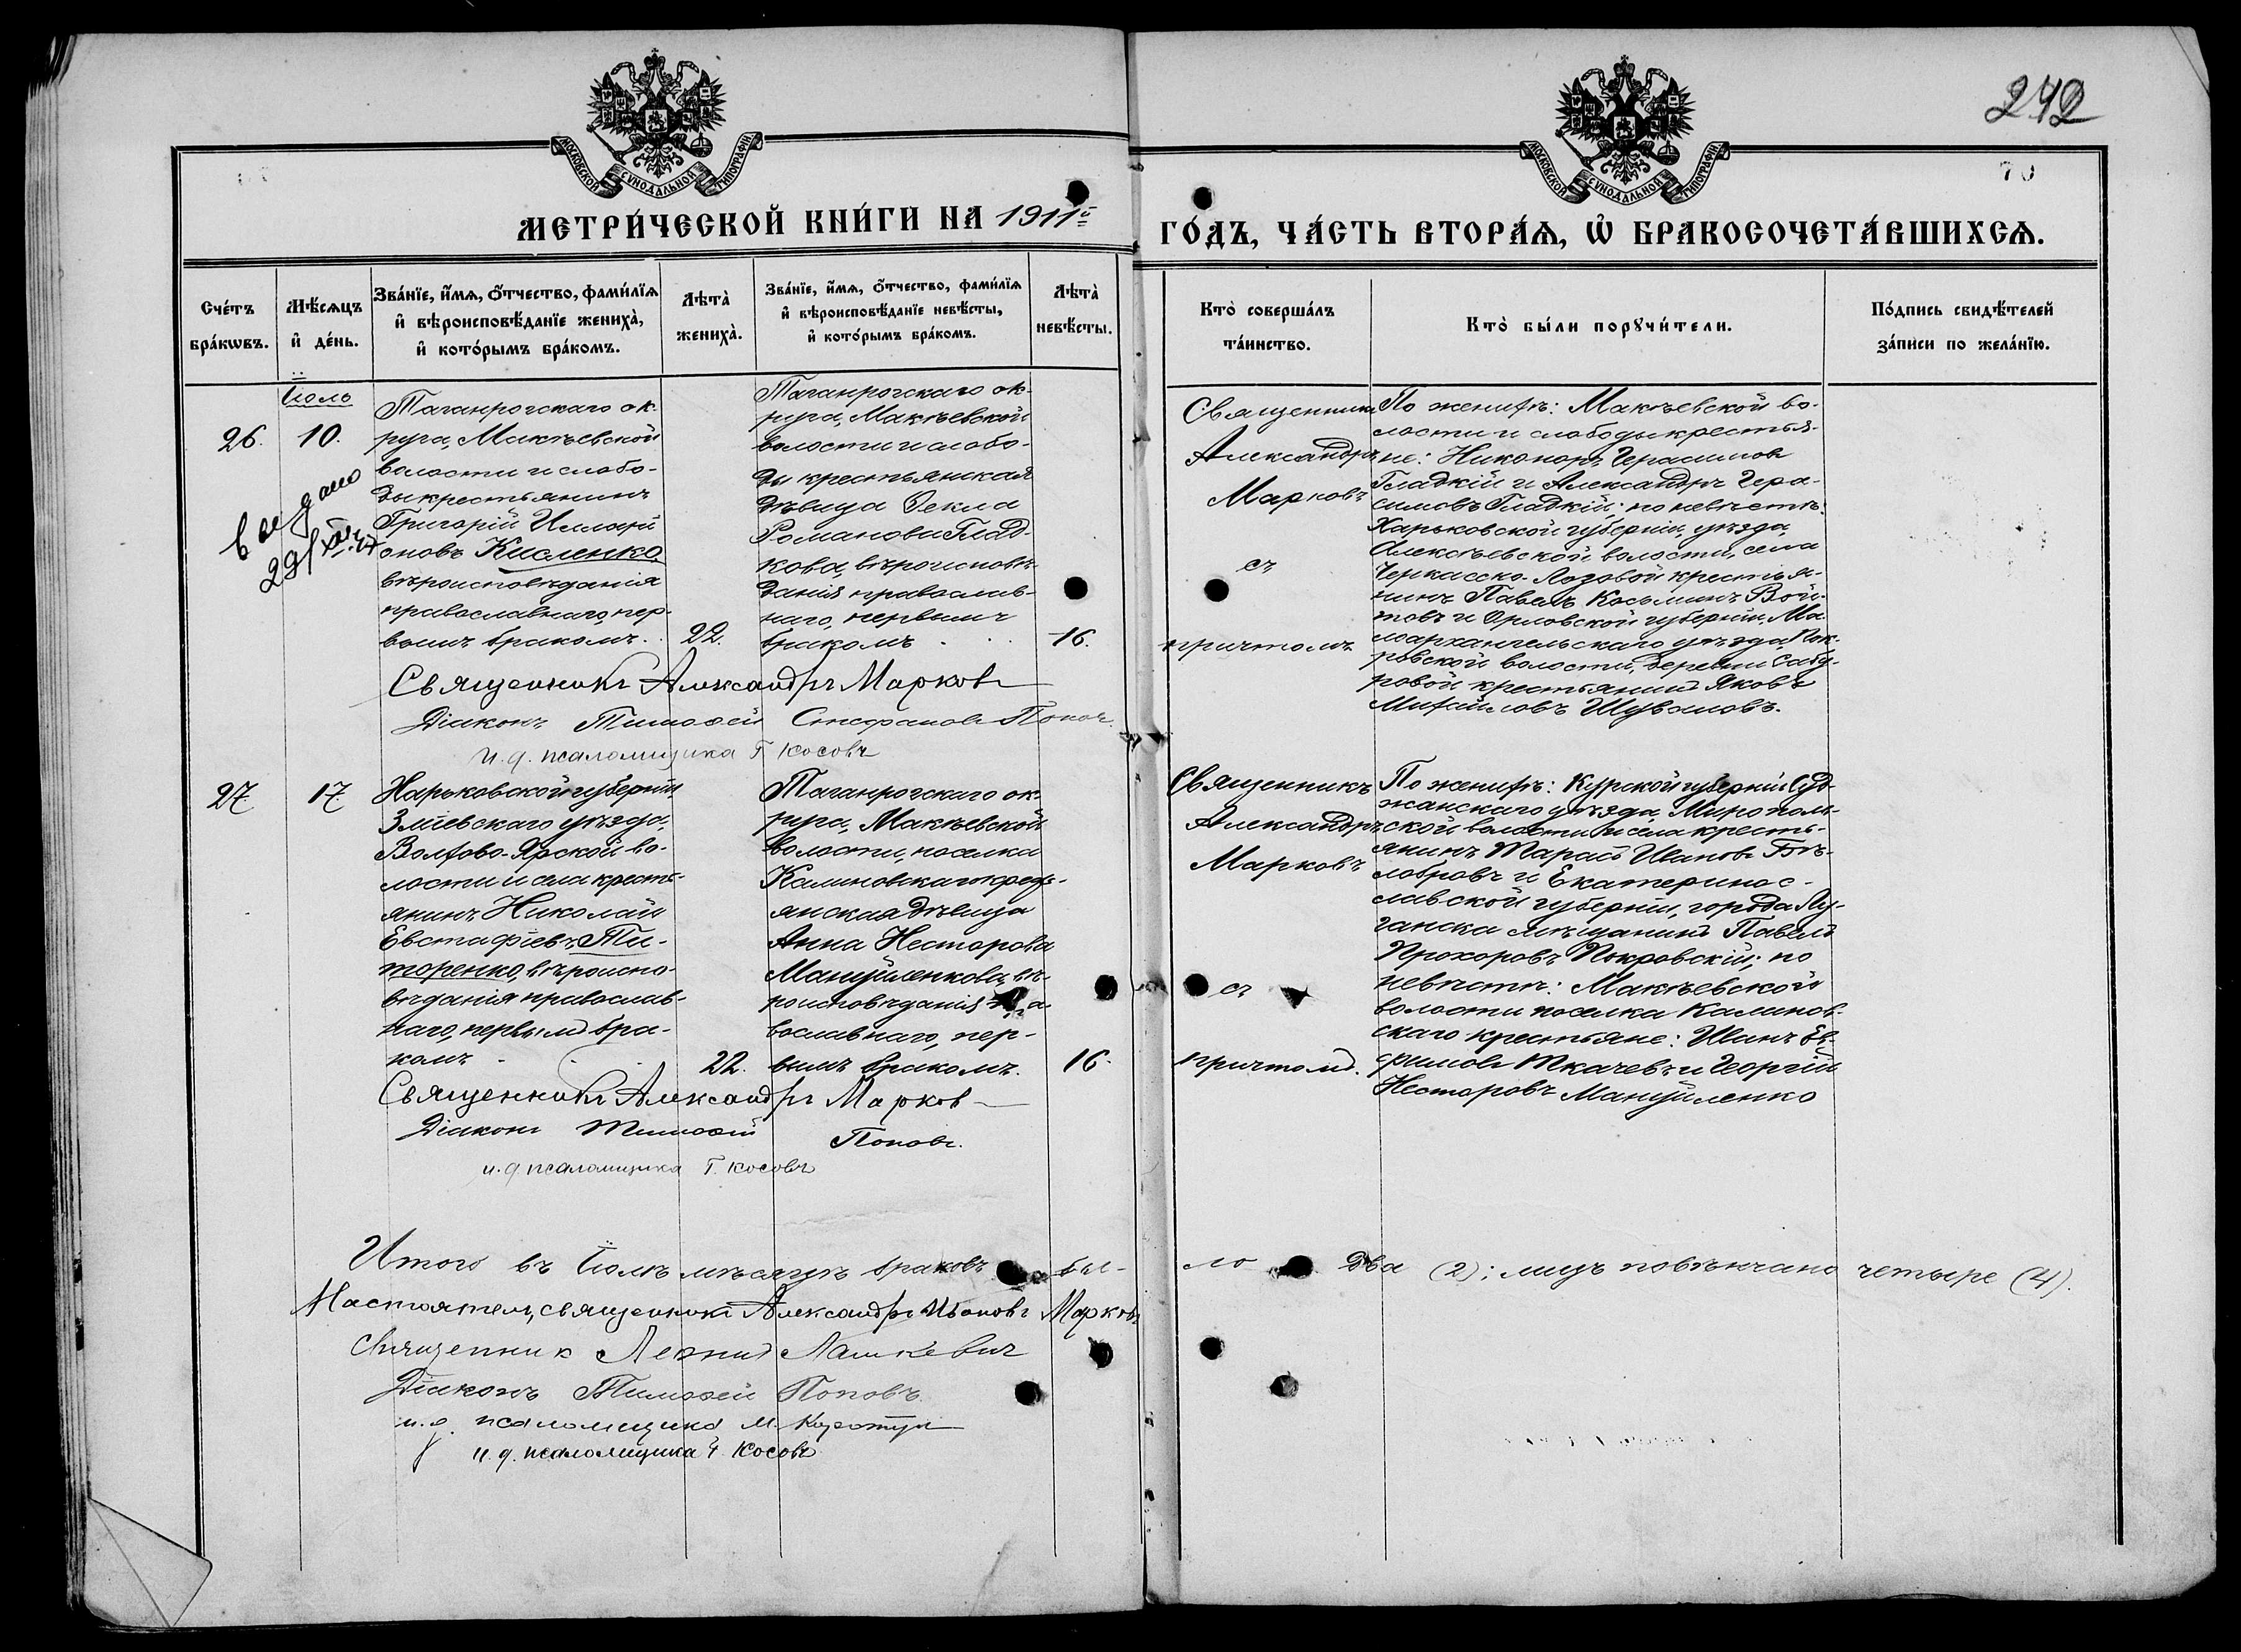 242
70
МОСКОВСКОЙ СУНОДАЛЬНОЙ ТИПОГРАФІИ
МОСКОВСКОЙ СУНОДАЛЬНОЙ ТИПОГРАФІИ
МЕТРИ́ЧЕСКОЙ КНИ́ГИ НА 1911й ГО́ДЪ, ЧА́СТЬ ВТОРА́Ѧ, Ѡ҆ БРАКОСОЧЕТА́ВШИХСѦ.
Сче́тъ
бра́кѡвъ.
Мѣ́сѧцъ
и҆ де́нь.
Зва́нїе, и҆́мѧ, ѻ҆́тчество, фами́лїѧ
и҆ вѣроисповѣ́данїе жениха̀,
и҆ кото́рымъ бра́комъ.
Лѣта̀
жениха̀.
Зва́нїе, и҆́мѧ, ѻ҆́тчество, фами́лїѧ
и҆ вѣроисповѣ́данїе невѣ́сты,
и҆ кото́рымъ бра́комъ.
Лѣта̀
невѣ́сты.
Кто̀ соверша́лъ
та́инство.
Кто̀ бы́ли порꙋчи́тели.
По́дпись свидѣ́телей
за́писи по жела́нїю.
26.
Іюль
10.
выдано
Таганрогскаго ок-
руга, Макѣевской
волости и слобо-
ды крестьянинъ
Григорій Илларі
оновъ Кисленко,
вѣроисповѣданія
православнаго, пер-
вымъ бракомъ.
22.
Таганрогскаго ок-
руга, Макѣевской
волости и слобо-
ды крестьянская
дѣвица Ѳекла
Романова Глад-
кова, вѣроисповѣ-
данія православ-
наго, первымъ
бракомъ
16.
Священникъ
Александръ
Марковъ
съ
причтомъ.
По женихѣ: Макѣевской во-
лости и слободы крестья-
не: Никоноръ Герасимовъ
Гладкій и Александръ Гера-
симовъ Гладкій; по невѣстѣ:
Харьковской губерніи, уѣзда,
Алексѣевской волости, села
Черкасско-Лозовой крестья-
нинъ Павелъ Косьминъ Вой-
товъ и Орловской губерніи, Ма-
лоархангельскаго уѣзда, Пок-
ровской волости, деревни Сабу-
ровой крестьянинъ Яковъ
Михайловъ Шуваловъ.
Священникъ Александръ Марковъ
Діаконъ Тимоѳей Стефановъ Поповъ.
и. д. псаломщика Г Косовъ
27.
17.
Харьковской губерніи,
Зміевскаго уѣзда,
Волохово-Ярской во-
лости и села кресть-
янинъ Николай
Евстафіевъ Ти-
торенко, вѣроиспо-
вѣданія православ-
наго, первымъ бра-
комъ
22.
Таганрогскаго ок-
руга, Макѣевской
волости, поселка
Калиновскаго кресть-
янская дѣвица
Анна Несторова
Мануйленкова, вѣ-
роисповѣданія пра-
вославнаго, пер-
вымъ бракомъ.
16.
Священникъ
Александръ
Марковъ
съ
причтомъ.
По женихѣ: Курской губерніи Суд-
жанскаго уѣзда, Мирополь-
ской волости и села кресть-
янинъ Тарасъ Ивановъ Бѣ-
лобровъ и Екатеринос-
лавской губерніи, города Лу-
ганска мѣщанинъ Павелъ
Прохоровъ Покровскій; по
невѣстѣ: Макѣевской
волости поселка Калинов-
скаго крестьяне: Иванъ Ев-
фимовъ Ткачевъ и Георгій
Несторовъ Мануйленко
Священникъ Александръ Марковъ
Діаконъ Тимоѳей Поповъ.
и. д псаломщика Г. Косовъ
Итого въ Іюлѣ мѣсяцѣ браковъ бы-ло два (2); лицъ повѣнчано четыре (4).
Настоятель, священникъ Александръ Марковъ
Священникъ Леонид Лашкевич
Діаконъ Тимоѳей Поповъ.
и. д. псаломщика М.
и. д. псаломщика Г. Косовъ